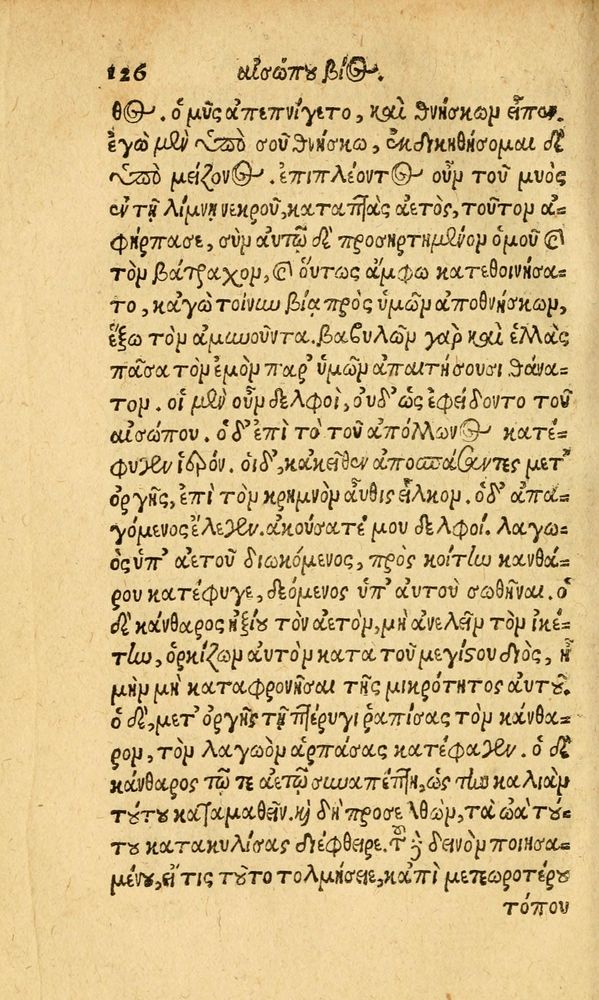 126 αἰσώπου βίος.
θος. ὁ μῦς ἀπεπνίγετο, καὶ θνήσκων εἶπεν.
ἐγὼ μὲν ὑπὸ σοῦ θνήσκω, ἐκδικηθήσομαι δὲ
ὑπὸ μείζονος. ἐπιπλέοντος οὖν τοῦ μυὸς
ἐν τῇ λίμνῃ νεκροῦ, καταπτὰς ἀετὸς, τοῦτον ἀ-
φήρπασε, σὺν αὐτῷ δὲ προσηρτημένον ὁμοῦ καὶ
τὸν βάτραχον, καὶ οὕτως ἄμφω κατεθοινήσα-
το, κἀγὼ τοίνυν βίᾳ πρὸς ὑμῶν ἀποθνήσκων,
ἕξω τὸν ἀμυνοῦντα. βαβυλὼν γὰρ καὶ ἑλλὰς
πᾶσα τὸν ἐμὸν παρ' ὑμῶν ἀπαιτήσουσι θάνα-
τον. οἱ μὲν οὖν δελφοὶ, οὐδ' ὣς ἐφείδοντο τοῦ
αἰσώπου. ὁ δ' ἐπὶ τὸ τοῦ ἀπόλλωνος κατέ-
φυγεν ἱερόν. οἱ δ', κἀκεῖθεν ἀποσπάσαντες μετ'
ὀργῆς, ἐπὶ τὸν κρημνὸν αὖθις εἷλκον. ὁ δ' ἀπα-
γόμενος ἔλεγεν. ἀκούσατέ μου δελφοί. λαγω-
ὸς ὑπ' ἀετοῦ διωκόμενος, πρὸς κοίτην κανθά-
ρου κατέφυγε, δεόμενος ὑπ' αὐτοῦ σωθῆναι. ὁ
δὲ κάνθαρος ἠξίου τὸν ἀετὸν, μὴ ἀνελεῖν τὸν ἱκέ-
την, ὁρκίζων αὐτὸν κατὰ τοῦ μεγίστου διὸς, ἦ
μὴν μὴ καταφρονῆσαι τῆς μικρότητος αὐτοῦ.
ὁ δὲ, μετ' ὀργῆς τῇ πτέρυγι ῥαπίσας τὸν κάνθα-
ρον, τὸν λαγωὸν ἁρπάσας κατέφαγεν. ὁ δὲ
κάνθαρος τῷ τε ἀετῷ συναπέπτη, ὡς τὴν καλιὰν
τούτου καταμαθεῖν. καὶ δὴ προσελθὼν, τὰ ὠὰ τού-
του κατακυλίσας διέφθειρε. τοῦ δὲ δεινὸν ποιησα-
μένου, εἴ τις τοῦτο τολμήσειε, κἀπὶ μετεωροτέρου
τόπου